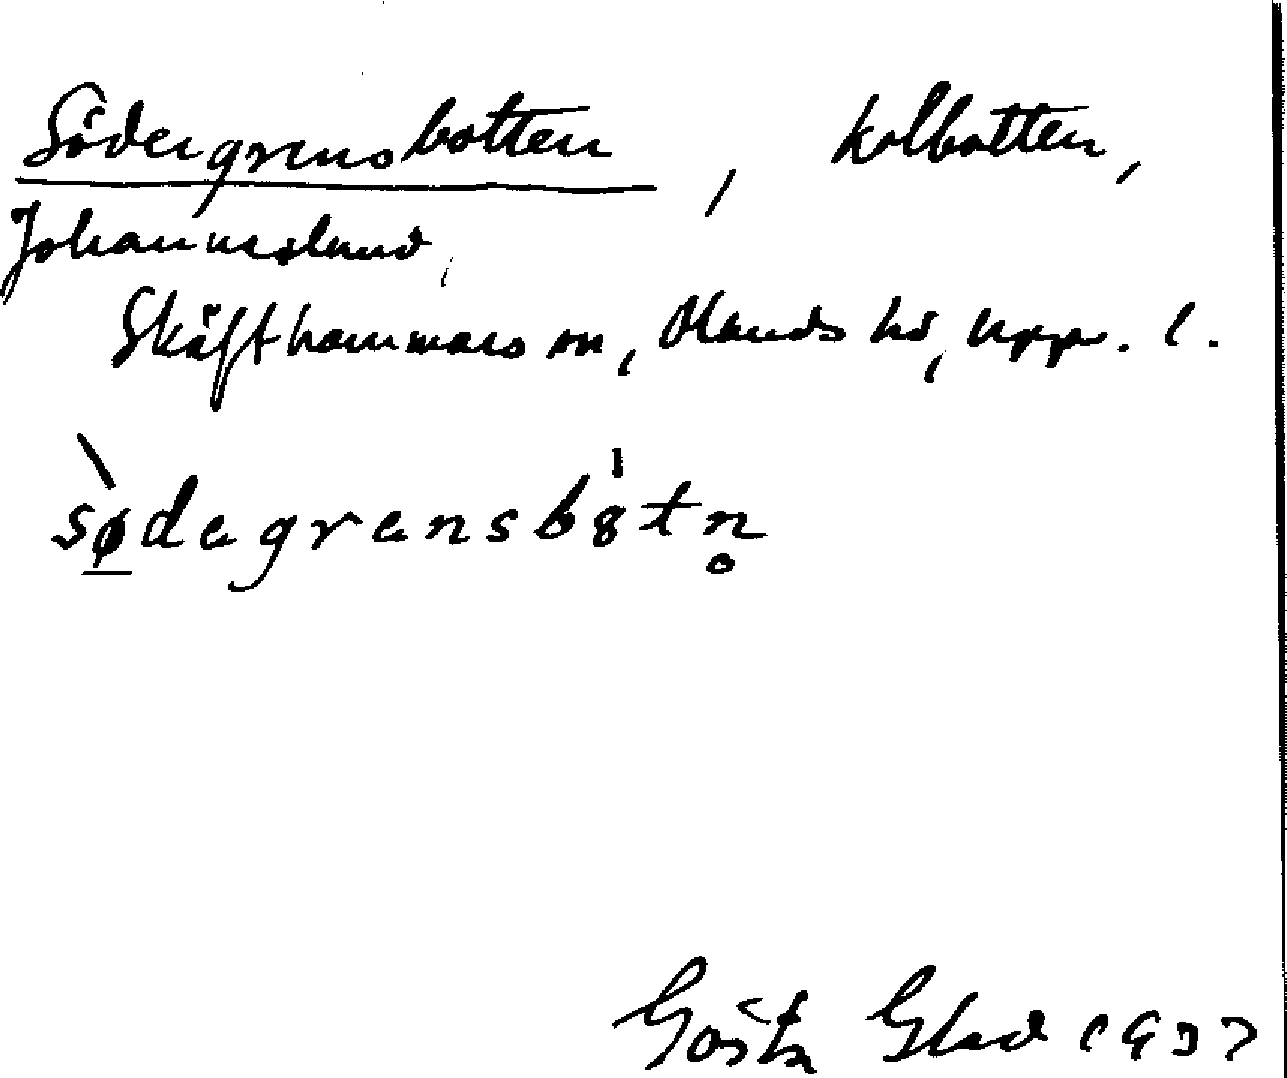 Södergrensbotten, kolbotten,
Johanneslund,
Skäfthammars sn, Olands hd, Uppl.
sø̀degrensbȣtn̥
Gösta Glad 1937